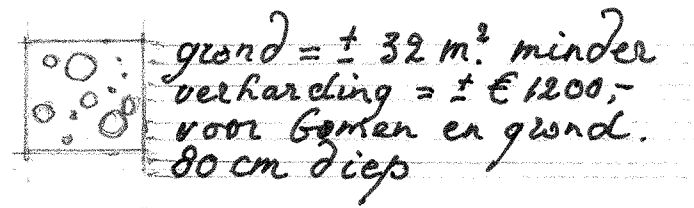 grond = ± 32 m² minder
verharding = ± € 1200,-
voor bomen en grond.
80 cm diep